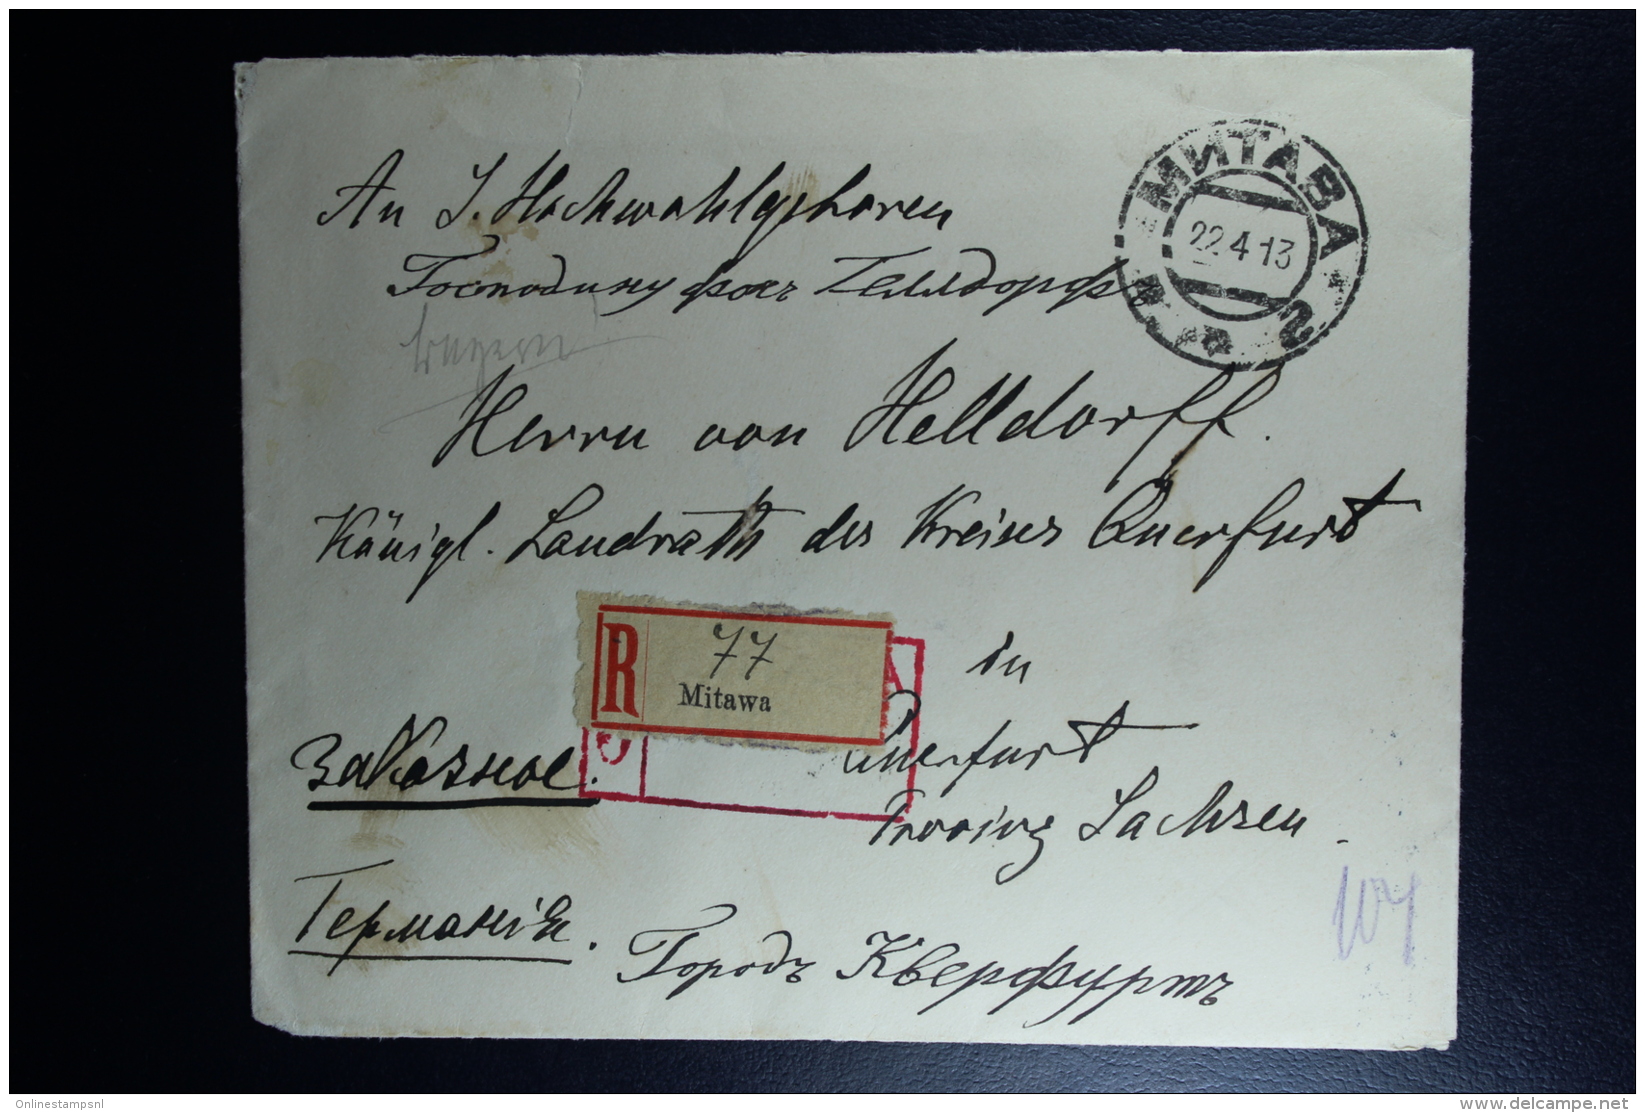 МИТАВА
22.4.13
2
An S. Hochwohlgeboren
Господину фонъ Гелльдорфъ
Herrn von Helldorff.
Königl. Landrath des Kreises Querfurt
R
77
Mitawa
in
Querfurt
Provinz Sachsen.
Заказное.
Германія.
Городъ Кверфуртъ
104
Onlinestampsnl
delcampe.net